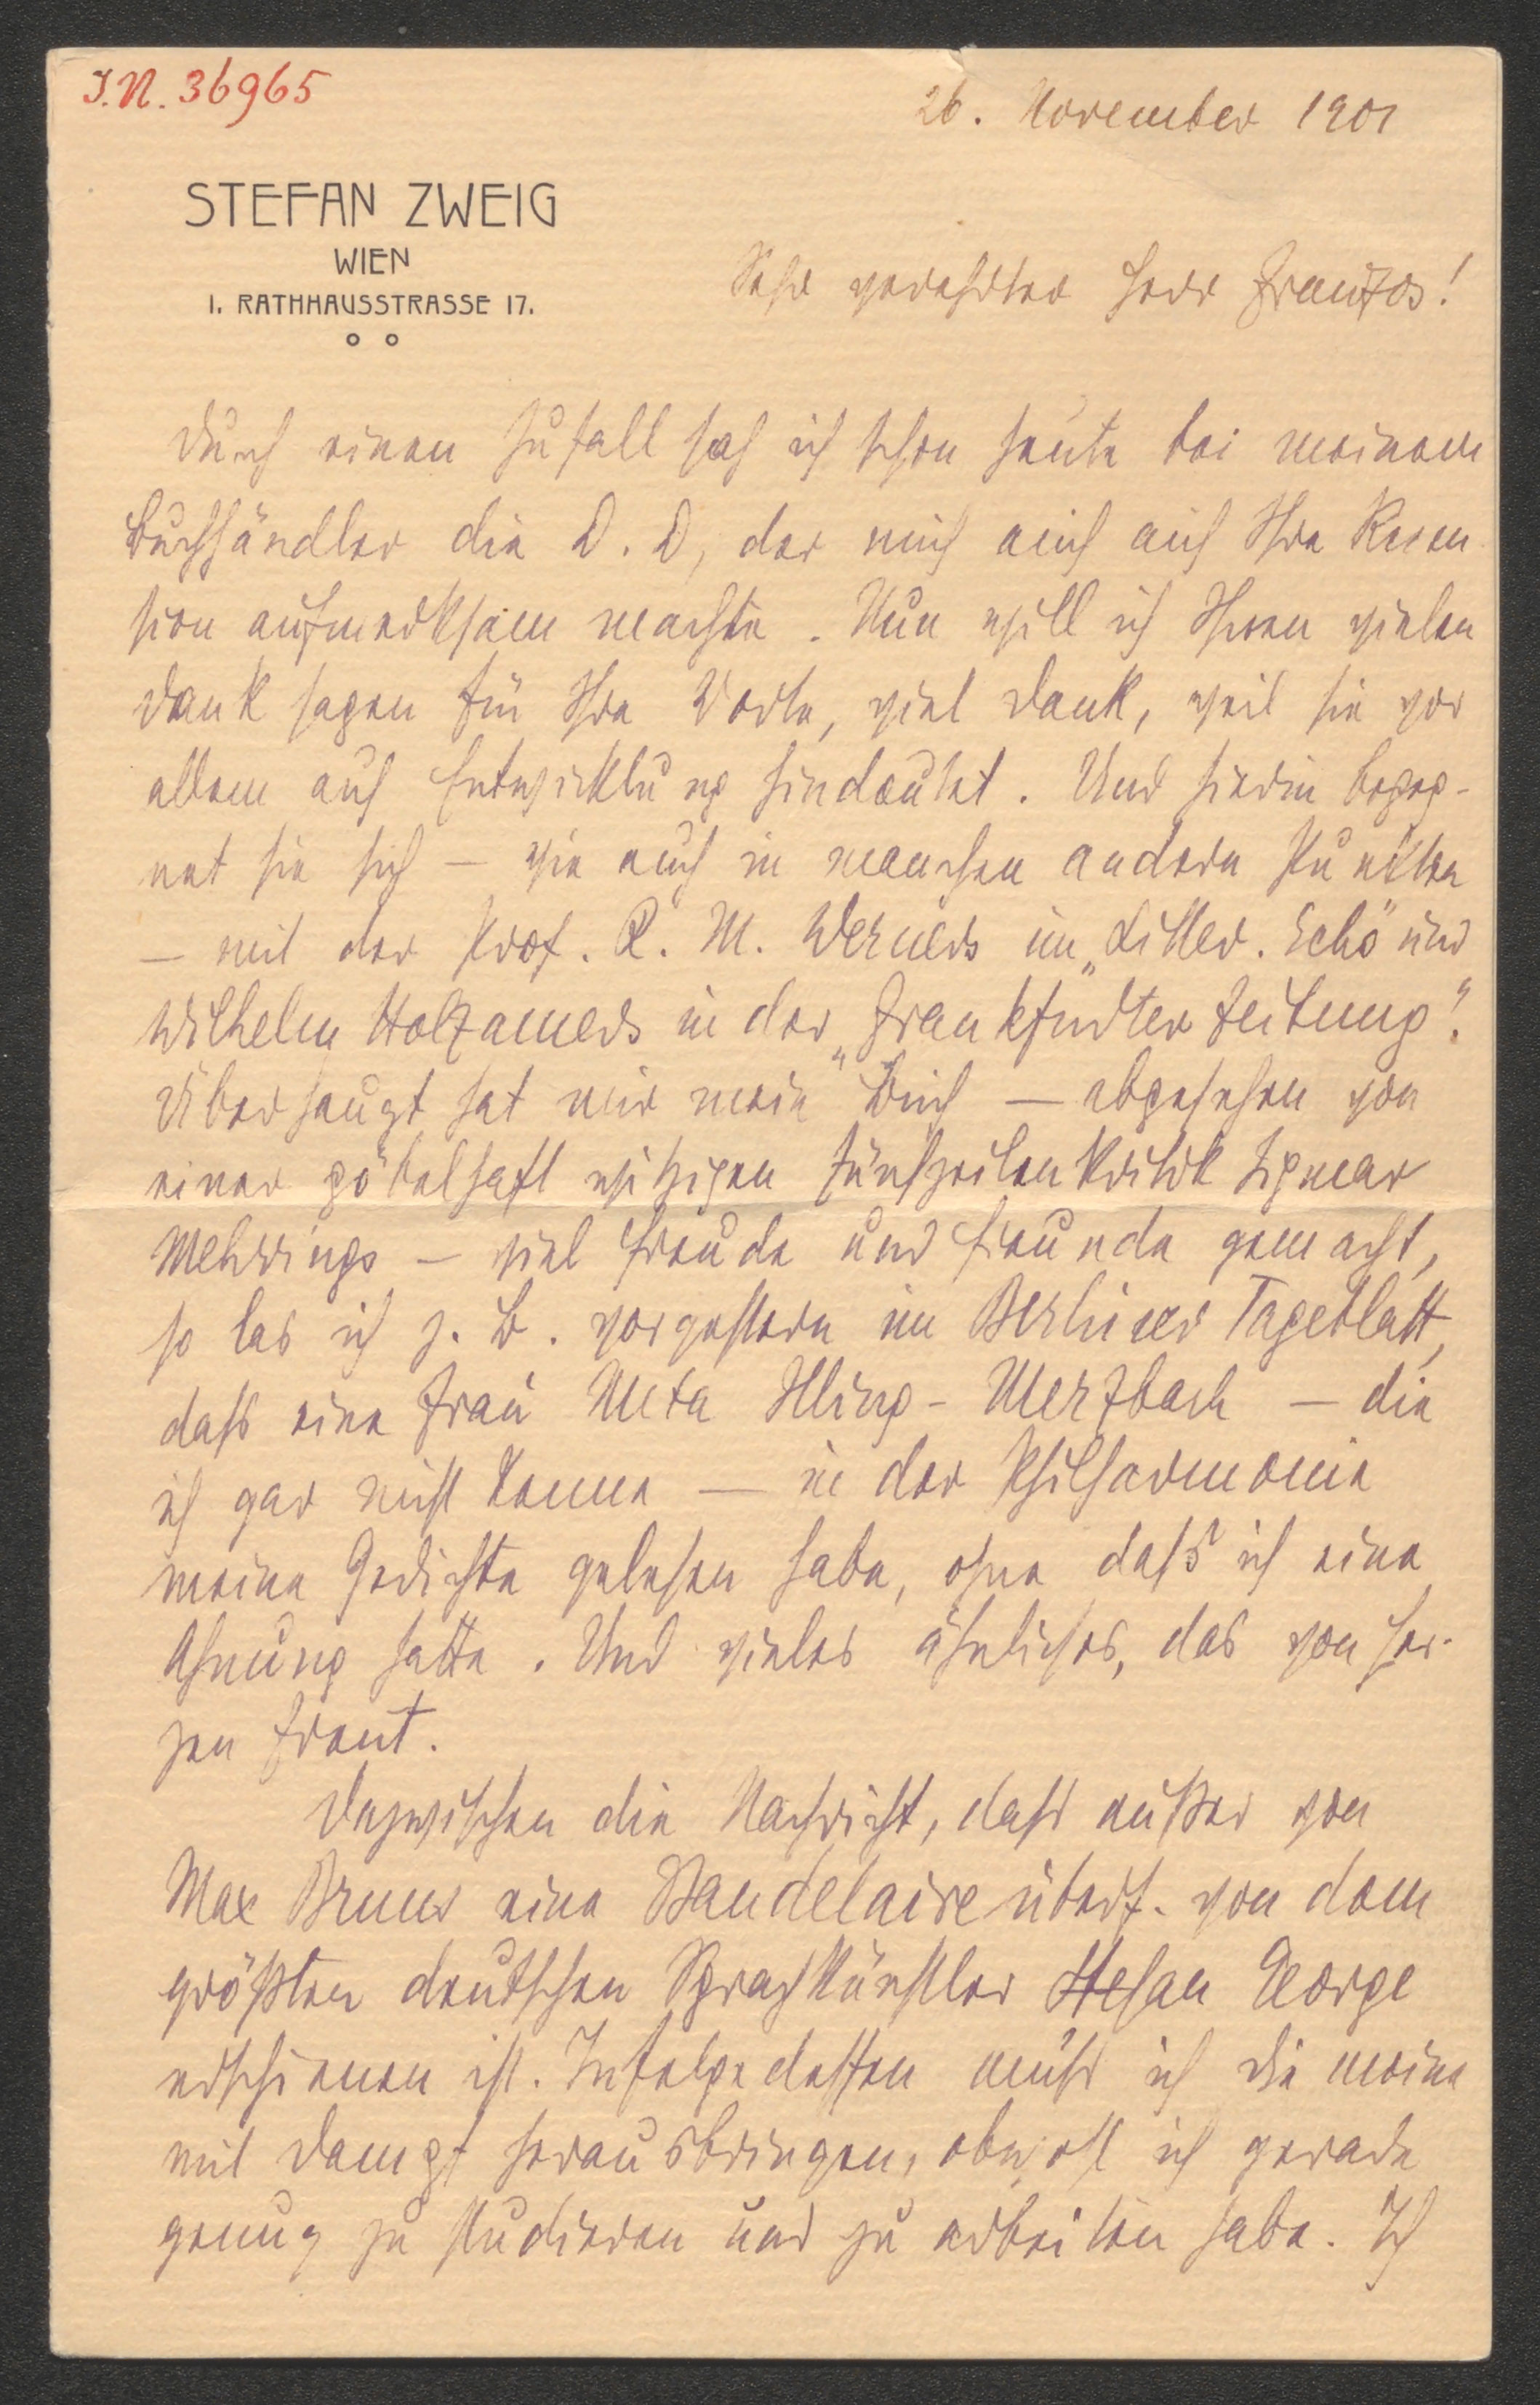 I.N. 36965
26. November 1901
STEFAN ZWEIG
WIEN
I. RATHHAUSSTRASSE 17.
Sehr verehrter Herr Franzos!
Durch einen Zufall sah ich schon heute bei meinem
Buchhändler die D. D, der mich auch auf Ihre Recen
sion aufmerksam machte. Nun will ich Ihnen vielen
Dank sagen für Ihre Worte, viel Dank, weil sie vor
allem auf Entwicklung hindeutet. Und hierin begeg-
net sie sich – wie auch in manchen andern Punkten
– mit der Prof. R. M. Werners im „Litter. Echo" und
Wilhelm Holzamers in der „Frankfurter Zeitung".
Überhaupt hat mir mein Buch – abgesehen von
einer pöbelhaft witzigen Fünfzeilenkritik Sigmar
Mehrings – viel Freude und Freunde gemacht,
so las ich z. B. vorgestern im Berliner Tageblatt,
dass eine Frau Meta Illing-Merzbach – die
ich gar nicht kenne – in der Philharmonie
meine Gedichte gelesen habe, ohne daß ich eine
Ahnung hatte. Und vieles ähnliches, das von Her-
zen freut.
Dazwischen die Nachricht, dass außer von
Max Bruns eine Baudelaireübers. von dem
größten deutschen Sprachkünstler Stefan George
erschienen ist. Infolgedessen muss ich die meine
mit Dampf herausbringen, obwohl ich gerade
genug zu studieren und zu arbeiten habe. Ich